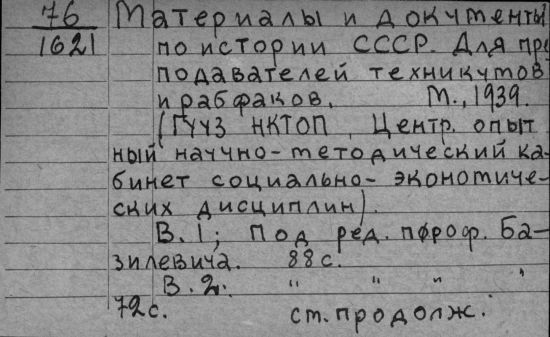 76 Материалы и документы
1621 по истории СССР. Для пре
подавателей техникумов
и рабфаков. М., 1939.
(ГУУЗ НКТОП, Центр. опыт
ный научно-методический ка-
бинет социально- экономиче-
ских дисциплин).
В. 1; Под ред. проф. Ба-
зилевича. 88 с.
В. 2. " " " "
72 с. ст. продолж.